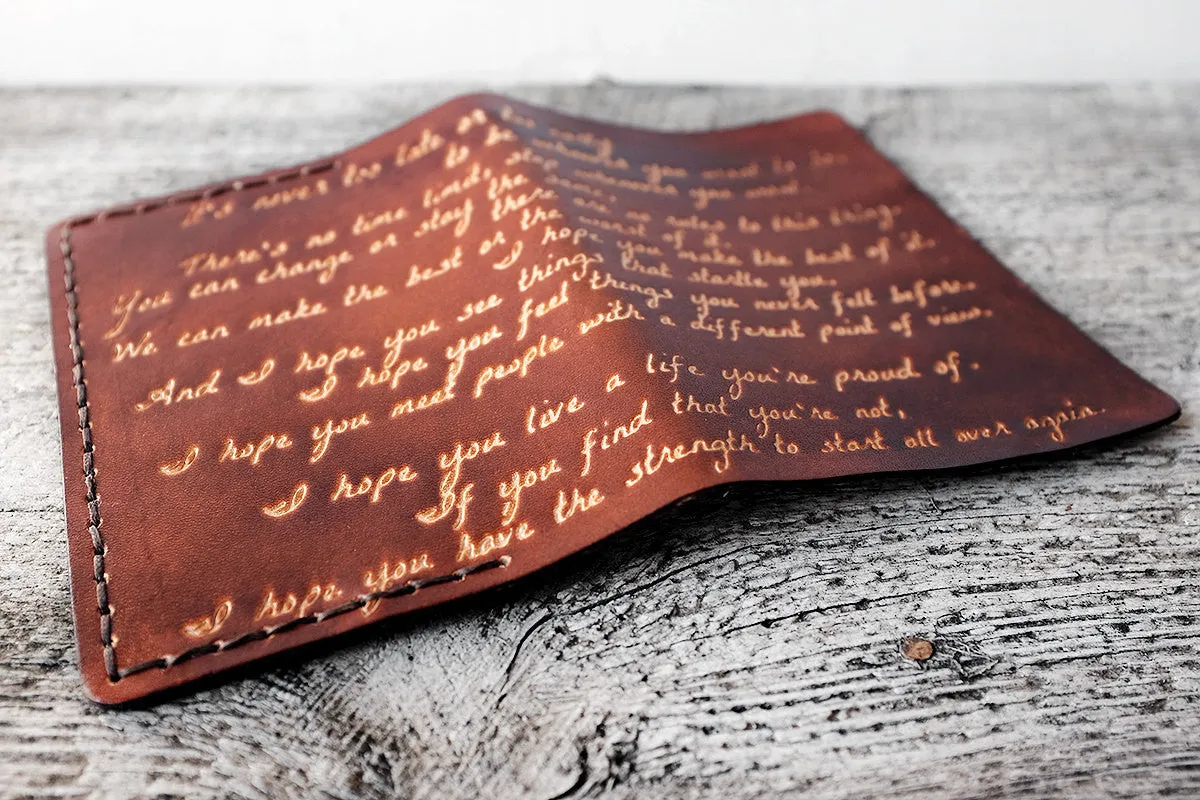 It's never too late or too early
to be whoever you want to be.
There's no time limit, stop whenever you want.
You can change or stay the same, there are no rules to this thing.
We can make the best or the worst of it.
I hope you make the best of it.
And I hope you see things that startle you.
I hope you feel things you never felt before.
I hope you meet people with a different point of view.
I hope you live a life you're proud of.
If you find that you're not,
I hope you have the strength to start all over again.